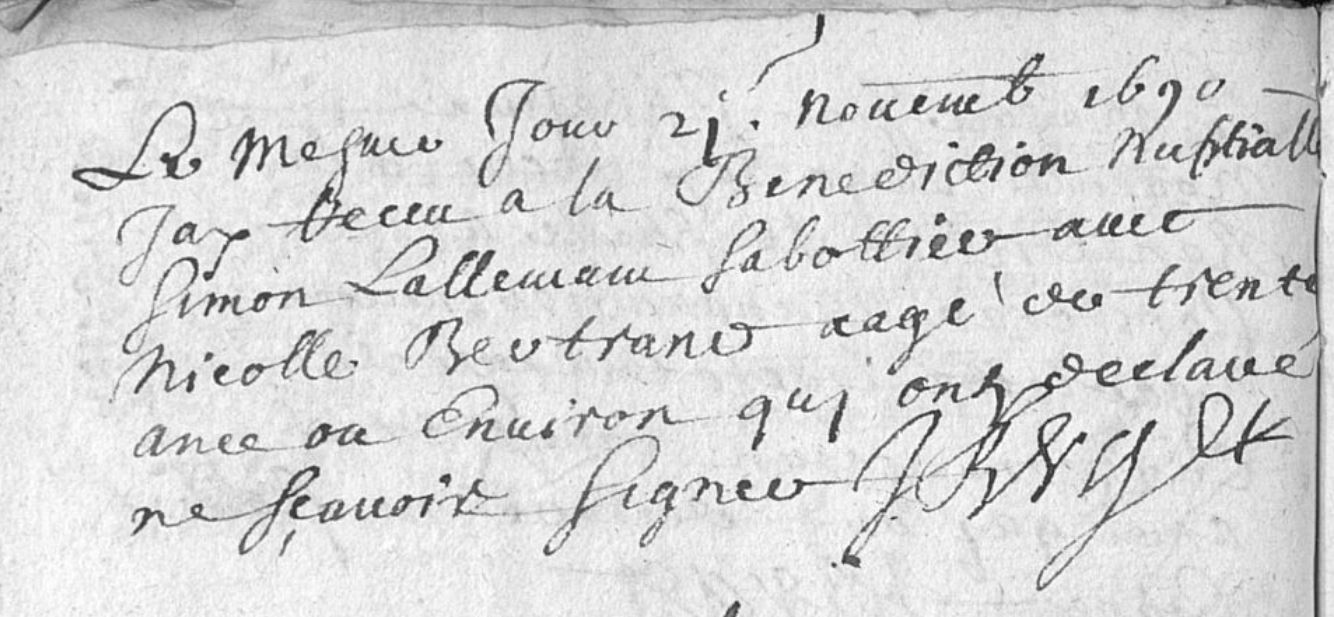 Le mesme Jour 21j. Novemb 1690
Jay Receu a la Benediction Nuptialle
Simon Lallemant sabottier avec
Nicolle Bertrand aagé de trente
ance ou Environ quj ont declaré
ne sçavoir signer